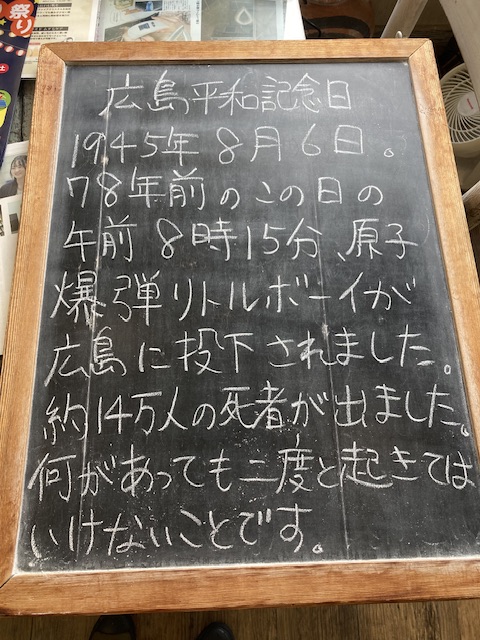 祭り
広島平和記念日
1945年8月6日。
78年前のこの日の
午前8時15分、原子
爆弾リトルボーイが
広島に投下されました。
約14万人の死者が出ました。
何があっても二度と起きては
いけないことです。